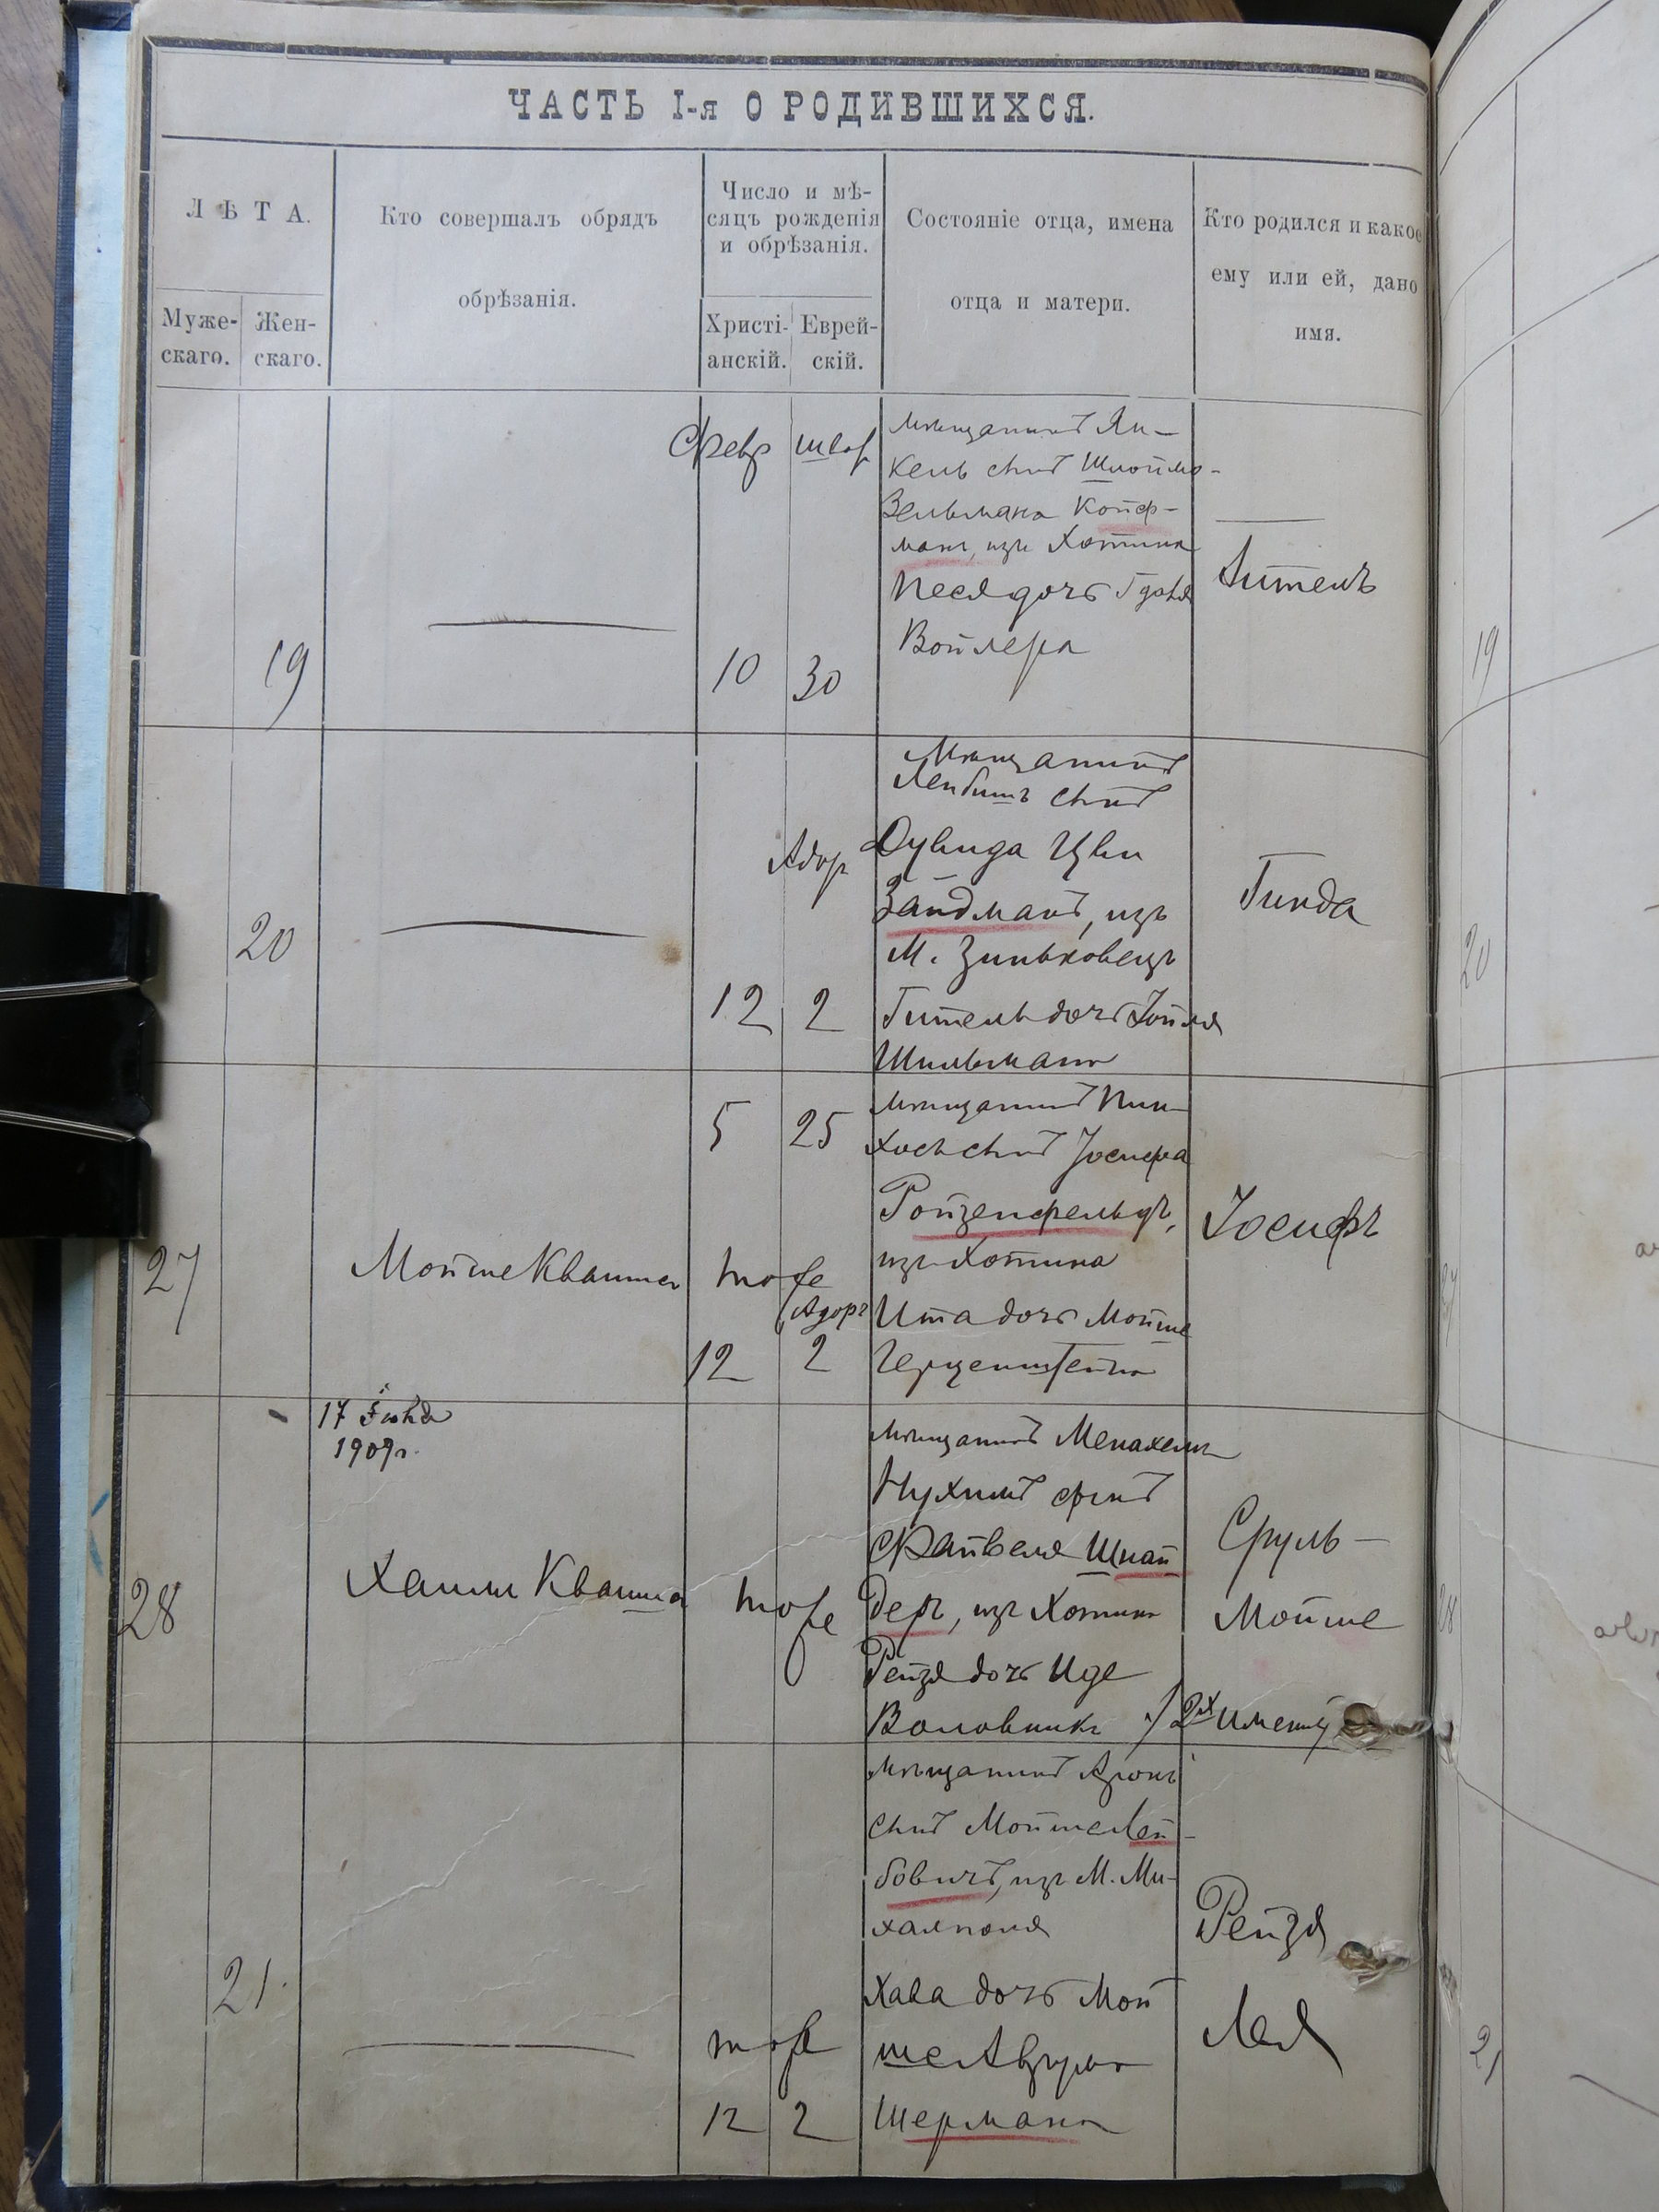 ЧАСТЬ I-я О РОДИВШИХСЯ.
ЛѢТА.
Муже-
скаго.
Жен-
скаго.
Кто совершалъ обрядъ
обрѣзанія.
Число и мѣ-
сяцъ рожденія
и обрѣзанія.
Христі-
анскій.
Еврей-
скій.
Состояніе отца, имена
отца и матери.
Кто родился и какое
ему или ей, дано
имя.
19
Февр
Шват
10
30
мѣщанинъ Ян-
кель сынъ Шлоймо-
Зельмана Койф-
манъ, изъ Хотина
Песя дочь
Войлера
20
Адар
12
2
Мѣщанинъ
Лейбишъ сынъ
Дувида Цви
Зайдманъ, изъ
М. Зиньковецъ
Гитель дочь Іойля
Шильмана
Гинда
27
Мойше Кваша
5
25
тоже
Адаръ
12
2
мѣщанинъ Пин-
хосъ сынъ Іосифа
Ройзенфельдъ,
изъ Хотина
Ита дочь Мойше
Герценштейна
Іосифъ
28
17
1909г.
Хаим Кваша
тоже
мѣщанинъ Менахемъ
Нухимъ сынъ
Файвеля Шнай
деръ, изъ Хотина
Рейзя дочь Иде
Воловникъ
Сруль-
Мойше
/2хъ именный
21.
тоже
12
2
мѣщанинъ Аронъ
сынъ Мойше Лей-
бовичъ, изъ М. Ми-
халполя
Хава дочь Мой
ше Аврума
Шермана
Рейзя
Лея
19
20
27
28
21